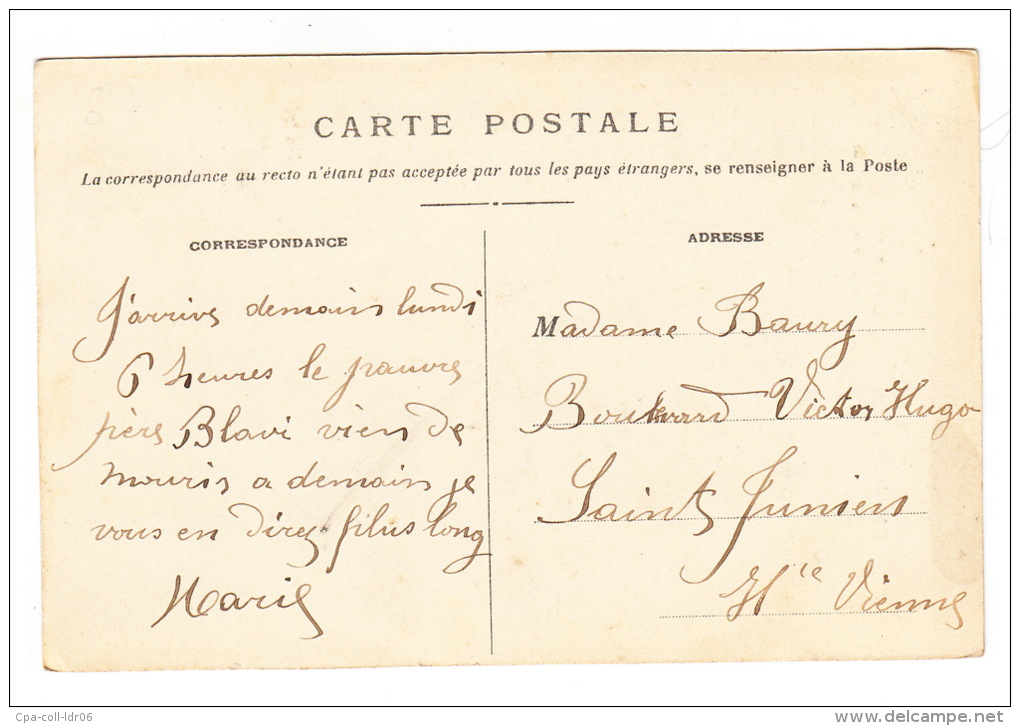 CARTE POSTALE
La correspondance au recto n'étant pas acceptée par tous les pays étrangers, se renseigner à la Poste
CORRESPONDANCE
J'arrive demain lundi
6 heures le pauvre
père Blavi vien de
mourir a demain je
vous en direz plus long
Marie
ADRESSE
Madame Baury
Boulevard Victor Hugo
Saint Junien
Hte Vienne
Cpa-coll-ldr06
www.delcampe.net